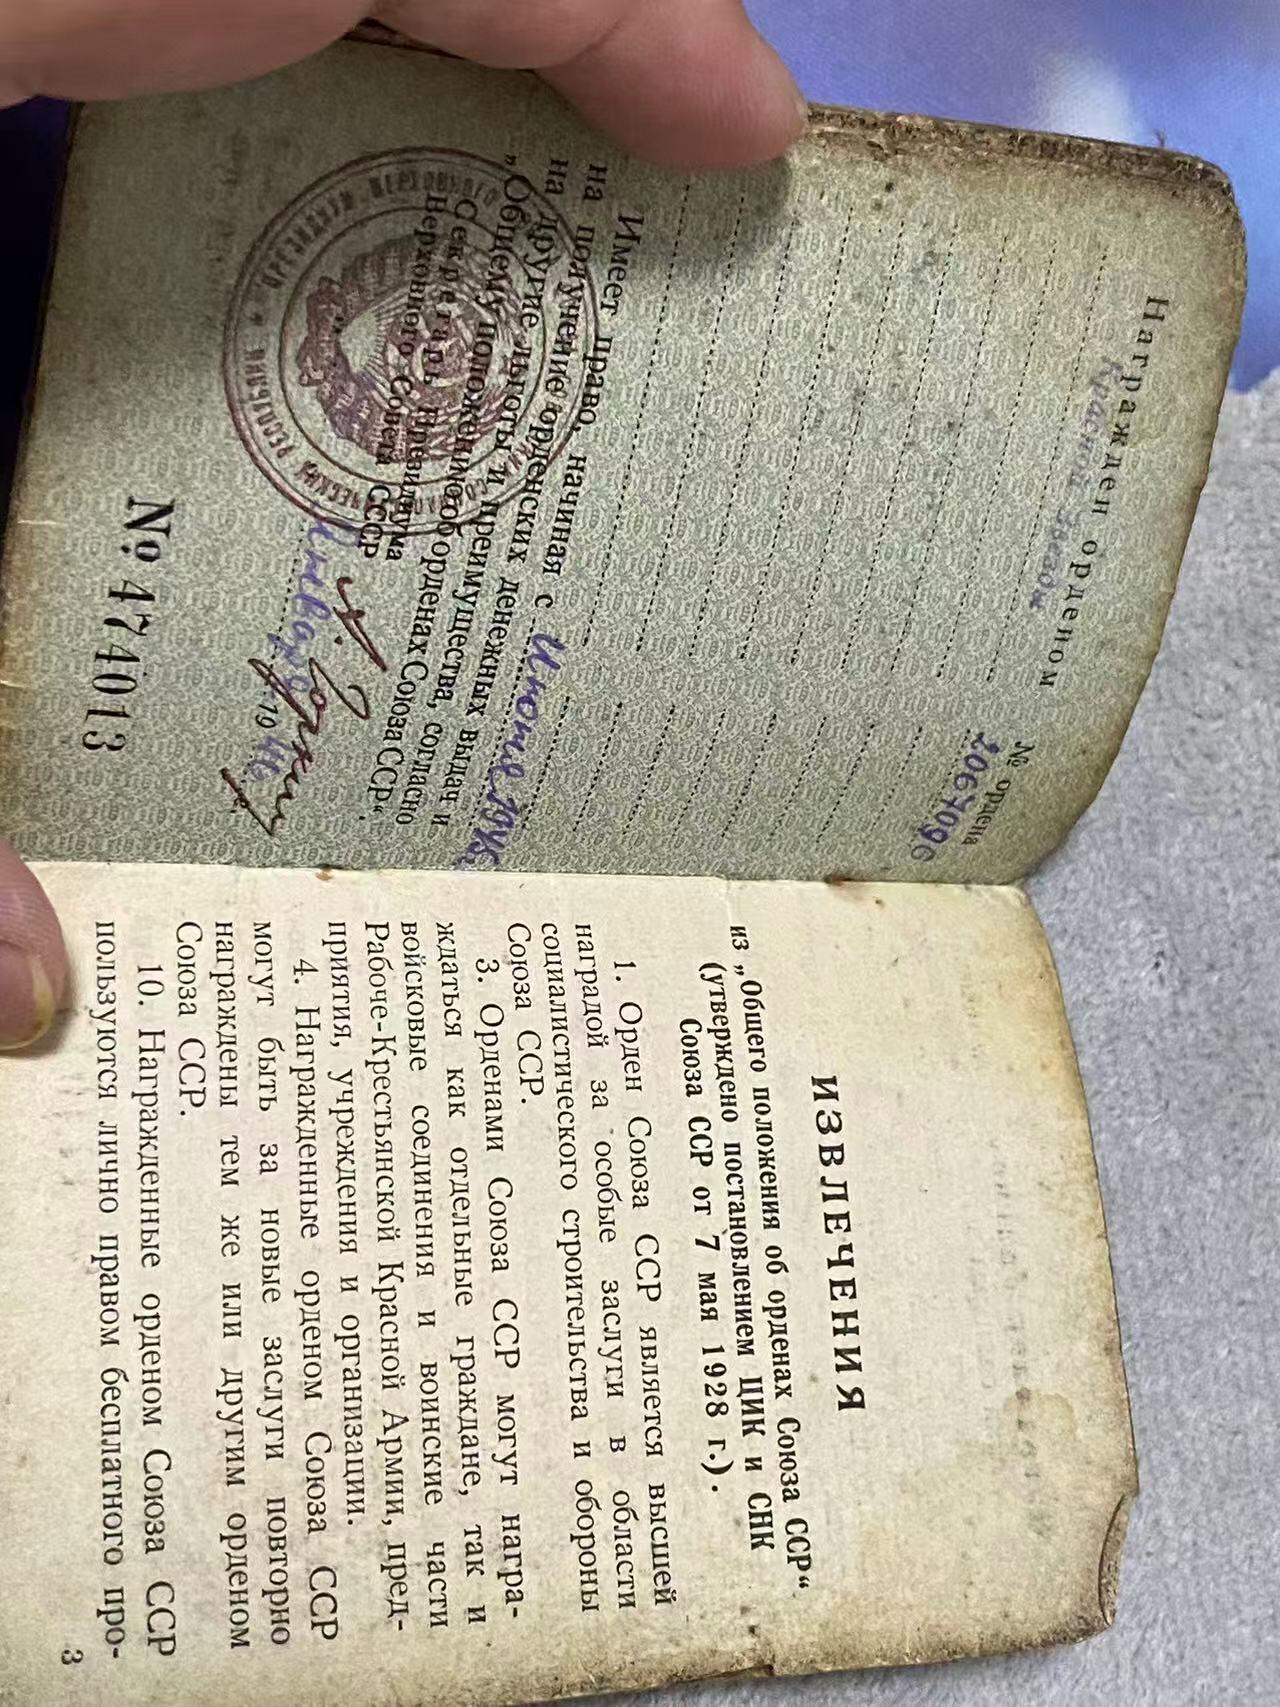 Награжден орденом
№ ордена
Красной Звезды
2067096
Имеет право, начиная с Июня 1945
на получение орденских денежных выдач и
на другие льготы и преимущества, согласно
„Общему положению об орденах Союза ССР“.
Секретарь Президиума
Верховного Совета СССР
А. Горкин
января 1946
№ 474013
ИЗВЛЕЧЕНИЯ
из „Общего положения об орденах Союза ССР“
(утверждено постановлением ЦИК и СНК
Союза ССР от 7 мая 1928 г.).
1. Орден Союза ССР является высшей
наградой за особые заслуги в области
социалистического строительства и обороны
Союза ССР.
3. Орденами Союза ССР могут награ-
ждаться как отдельные граждане, так и
войсковые соединения и воинские части
Рабоче-Крестьянской Красной Армии, пред-
приятия, учреждения и организации.
4. Награжденные орденом Союза ССР
могут быть за новые заслуги повторно
награждены тем же или другим орденом
Союза ССР.
10. Награжденные орденом Союза ССР
пользуются лично правом бесплатного про-
3